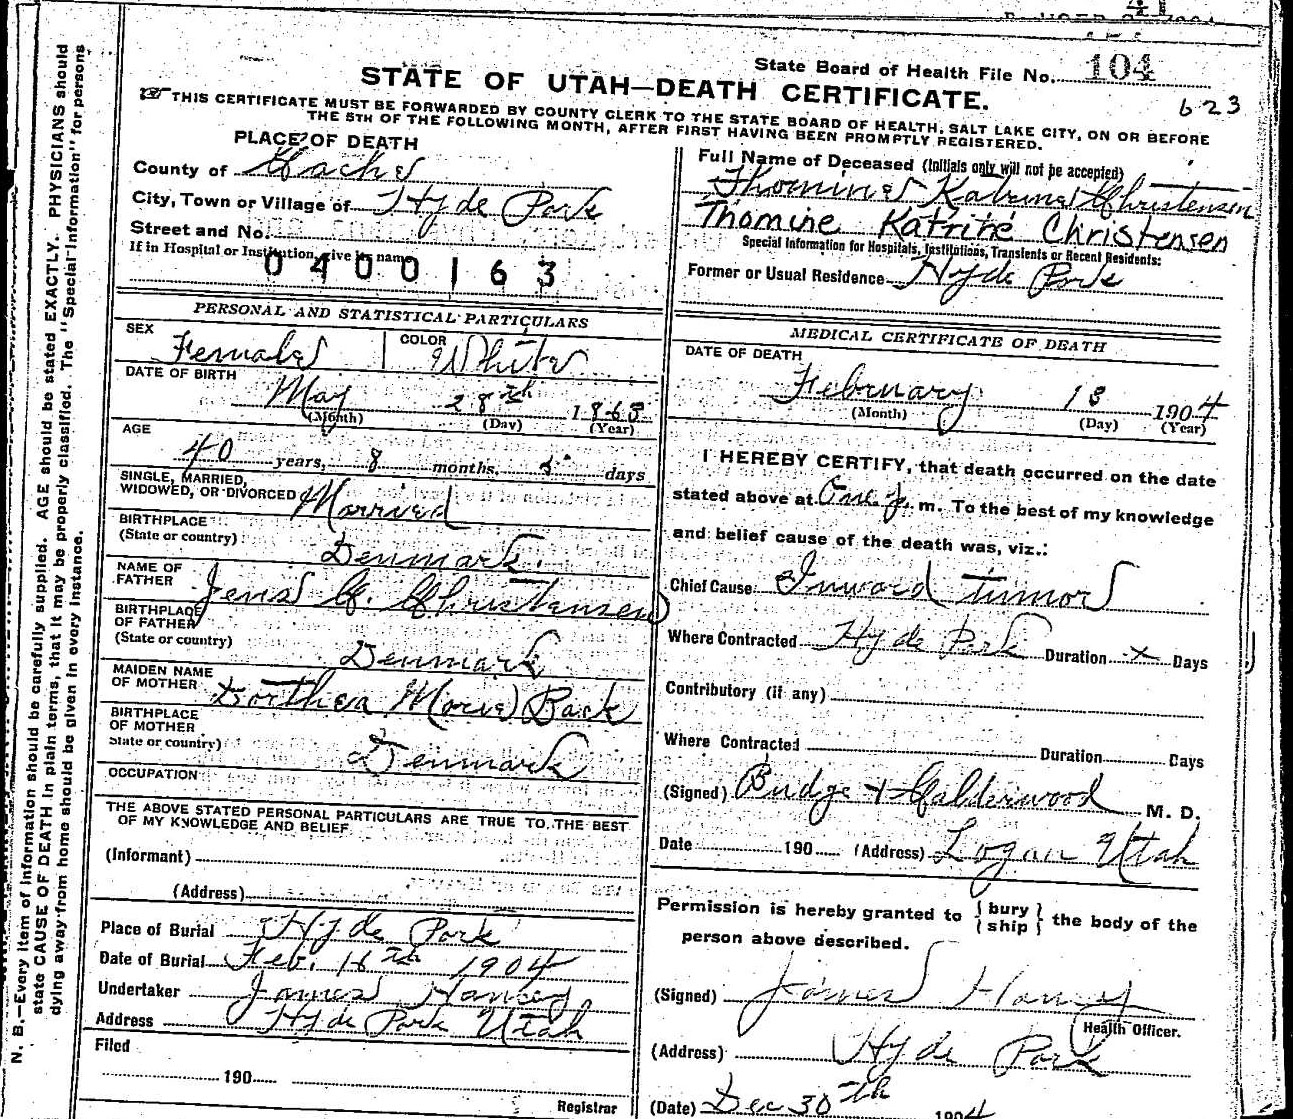 State Board of Health File No. 104
STATE OF UTAH—DEATH CERTIFICATE.
623
THIS CERTIFICATE MUST BE FORWARDED BY COUNTY CLERK TO THE STATE BOARD OF HEALTH, SALT LAKE CITY, ON OR BEFORE
THE 5TH OF THE FOLLOWING MONTH, AFTER FIRST HAVING BEEN PROMPTLY REGISTERED.
PLACE OF DEATH
County of Cache
City, Town or Village of Hyde Park
Street and No.
If in Hospital or Institution, give its name
0400163
Full Name of Deceased (Initials only will not be accepted)
Thomine Katrine Christensen
Thomine Katrine Christensen
Special Information for Hospitals, Institutions, Transients or Recent Residents:
Former or Usual Residence Hyde Park
PERSONAL AND STATISTICAL PARTICULARS
SEX Female COLOR White
DATE OF BIRTH
May 28th 1863
(Month) (Day) (Year)
AGE
40 years, 8 months, 5 days
SINGLE, MARRIED,
WIDOWED, OR DIVORCED Married
BIRTHPLACE
(State or country) Denmark
NAME OF
FATHER Jens C. Christensen
BIRTHPLACE
OF FATHER
(State or country) Denmark
MAIDEN NAME
OF MOTHER Dorthea Marie Back
BIRTHPLACE
OF MOTHER
State or country) Denmark
OCCUPATION
THE ABOVE STATED PERSONAL PARTICULARS ARE TRUE TO THE BEST
OF MY KNOWLEDGE AND BELIEF
(Informant)
(Address)
Place of Burial Hyde Park
Date of Burial Feb. 16th 1904
Undertaker James Hancey
Address Hyde Park Utah
Filed
190
Registrar
MEDICAL CERTIFICATE OF DEATH
DATE OF DEATH
February 13 1904
(Month) (Day) (Year)
I HEREBY CERTIFY, that death occurred on the date
stated above at One p. m. To the best of my knowledge
and belief cause of the death was, viz.:
Chief Cause Inward tumor
Where Contracted Hyde Park Duration x Days
Contributory (if any)
Where Contracted Duration Days
(Signed) Budge + Calderwood M. D.
Date 190 (Address) Logan Utah
Permission is hereby granted to {bury
ship} the body of the
person above described.
(Signed) James Hancey
Health Officer.
(Address) Hyde Park
(Date) Dec 30th 1904
N. B.—Every item of information should be carefully supplied. AGE should be stated EXACTLY. PHYSICIANS should
state CAUSE OF DEATH in plain terms, that it may be properly classified. The "Special Information" for persons
dying away from home should be given in every instance.